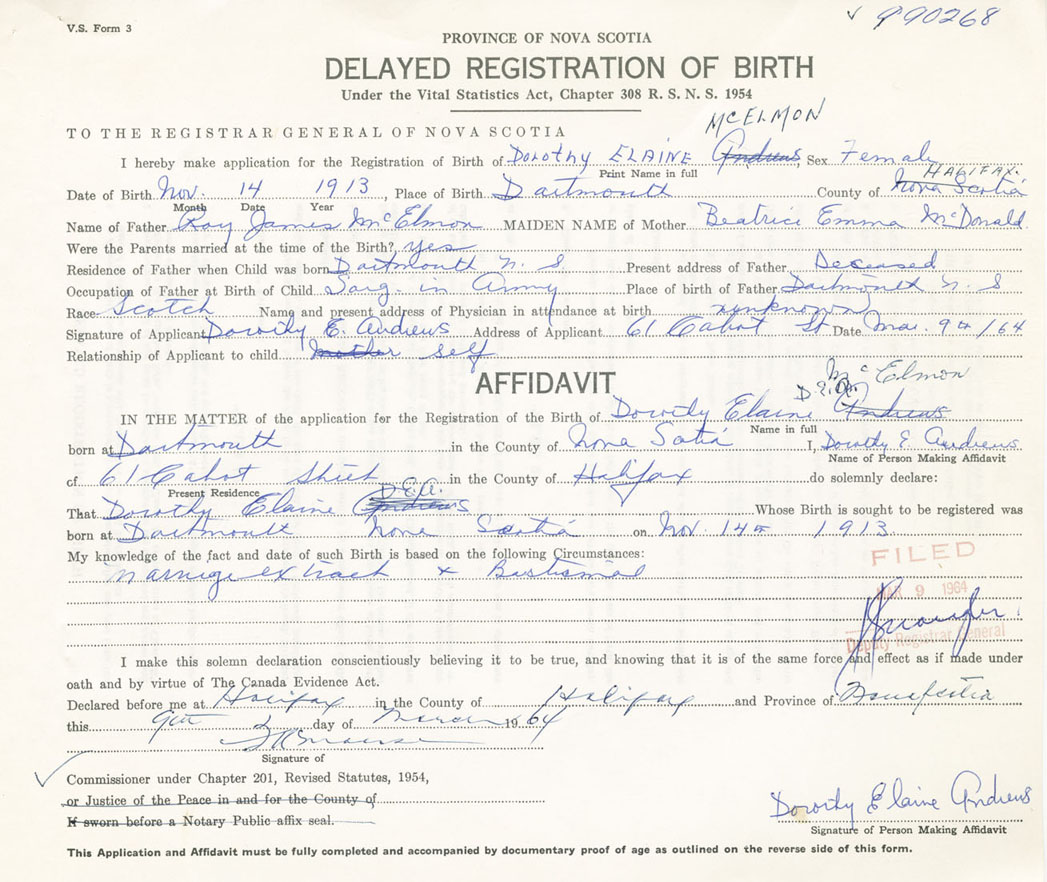 V.S. Form 3
✓ 990268
PROVINCE OF NOVA SCOTIA
DELAYED REGISTRATION OF BIRTH
Under the Vital Statistics Act, Chapter 308 R. S. N. S. 1954
McELMON
TO THE REGISTRAR GENERAL OF NOVA SCOTIA
I hereby make application for the Registration of Birth of Dorothy ELAINE Andrews Sex Female
Print Name in full
HALIFAX.
Date of Birth Nov. 14 1913, Place of Birth Dartmouth County of Nova Scotia
Month Date Year
Name of Father Roy James McElmon MAIDEN NAME of Mother Beatrice Emma McDonald
Were the Parents married at the time of the Birth? yes
Residence of Father when Child was born Dartmouth N. S Present address of Father Deceased
Occupation of Father at Birth of Child Sarg. in Army Place of birth of Father Dartmouth N. S
Race Scotch Name and present address of Physician in attendance at birth unknown
Signature of Applicant Dorothy E. Andrews Address of Applicant 61 Cabot St Date Mar. 9th/64
Relationship of Applicant to child mother self
AFFIDAVIT
McElmon
D.E.A.
IN THE MATTER of the application for the Registration of Birth of Dorothy Elaine Andrews
Name in full
born at Dartmouth in the County of Nova Sotia I, Dorothy E. Andrews
Name of Person Making Affidavit
of 61 Cabot Street in the County of Halifax do solemnly declare:
Present Residence
D.E.A.
That Dorothy Elaine Andrews Whose Birth is sought to be registered was
born at Dartmouth Nova Scotia on Nov. 14th 1913
My knowledge of the fact and date of such Birth is based on the following Circumstances:
Marriage extract + Baptismal
FILED
MAR 9 1964
Deputy Registrar General
I make this solemn declaration conscientiously believing it to be true, and knowing that it is of the same force and effect as if made under
oath and by virtue of The Canada Evidence Act.
Declared before me at Halifax in the County of Halifax and Province of Nova Scotia
this 9th day of March 1964
Signature of
Commissioner under Chapter 201, Revised Statutes, 1954,
or Justice of the Peace in and for the County of
If sworn before a Notary Public affix seal.
Dorothy Elaine Andrews
Signature of Person Making Affidavit
This Application and Affidavit must be fully completed and accompanied by documentary proof of age as outlined on the reverse side of this form.